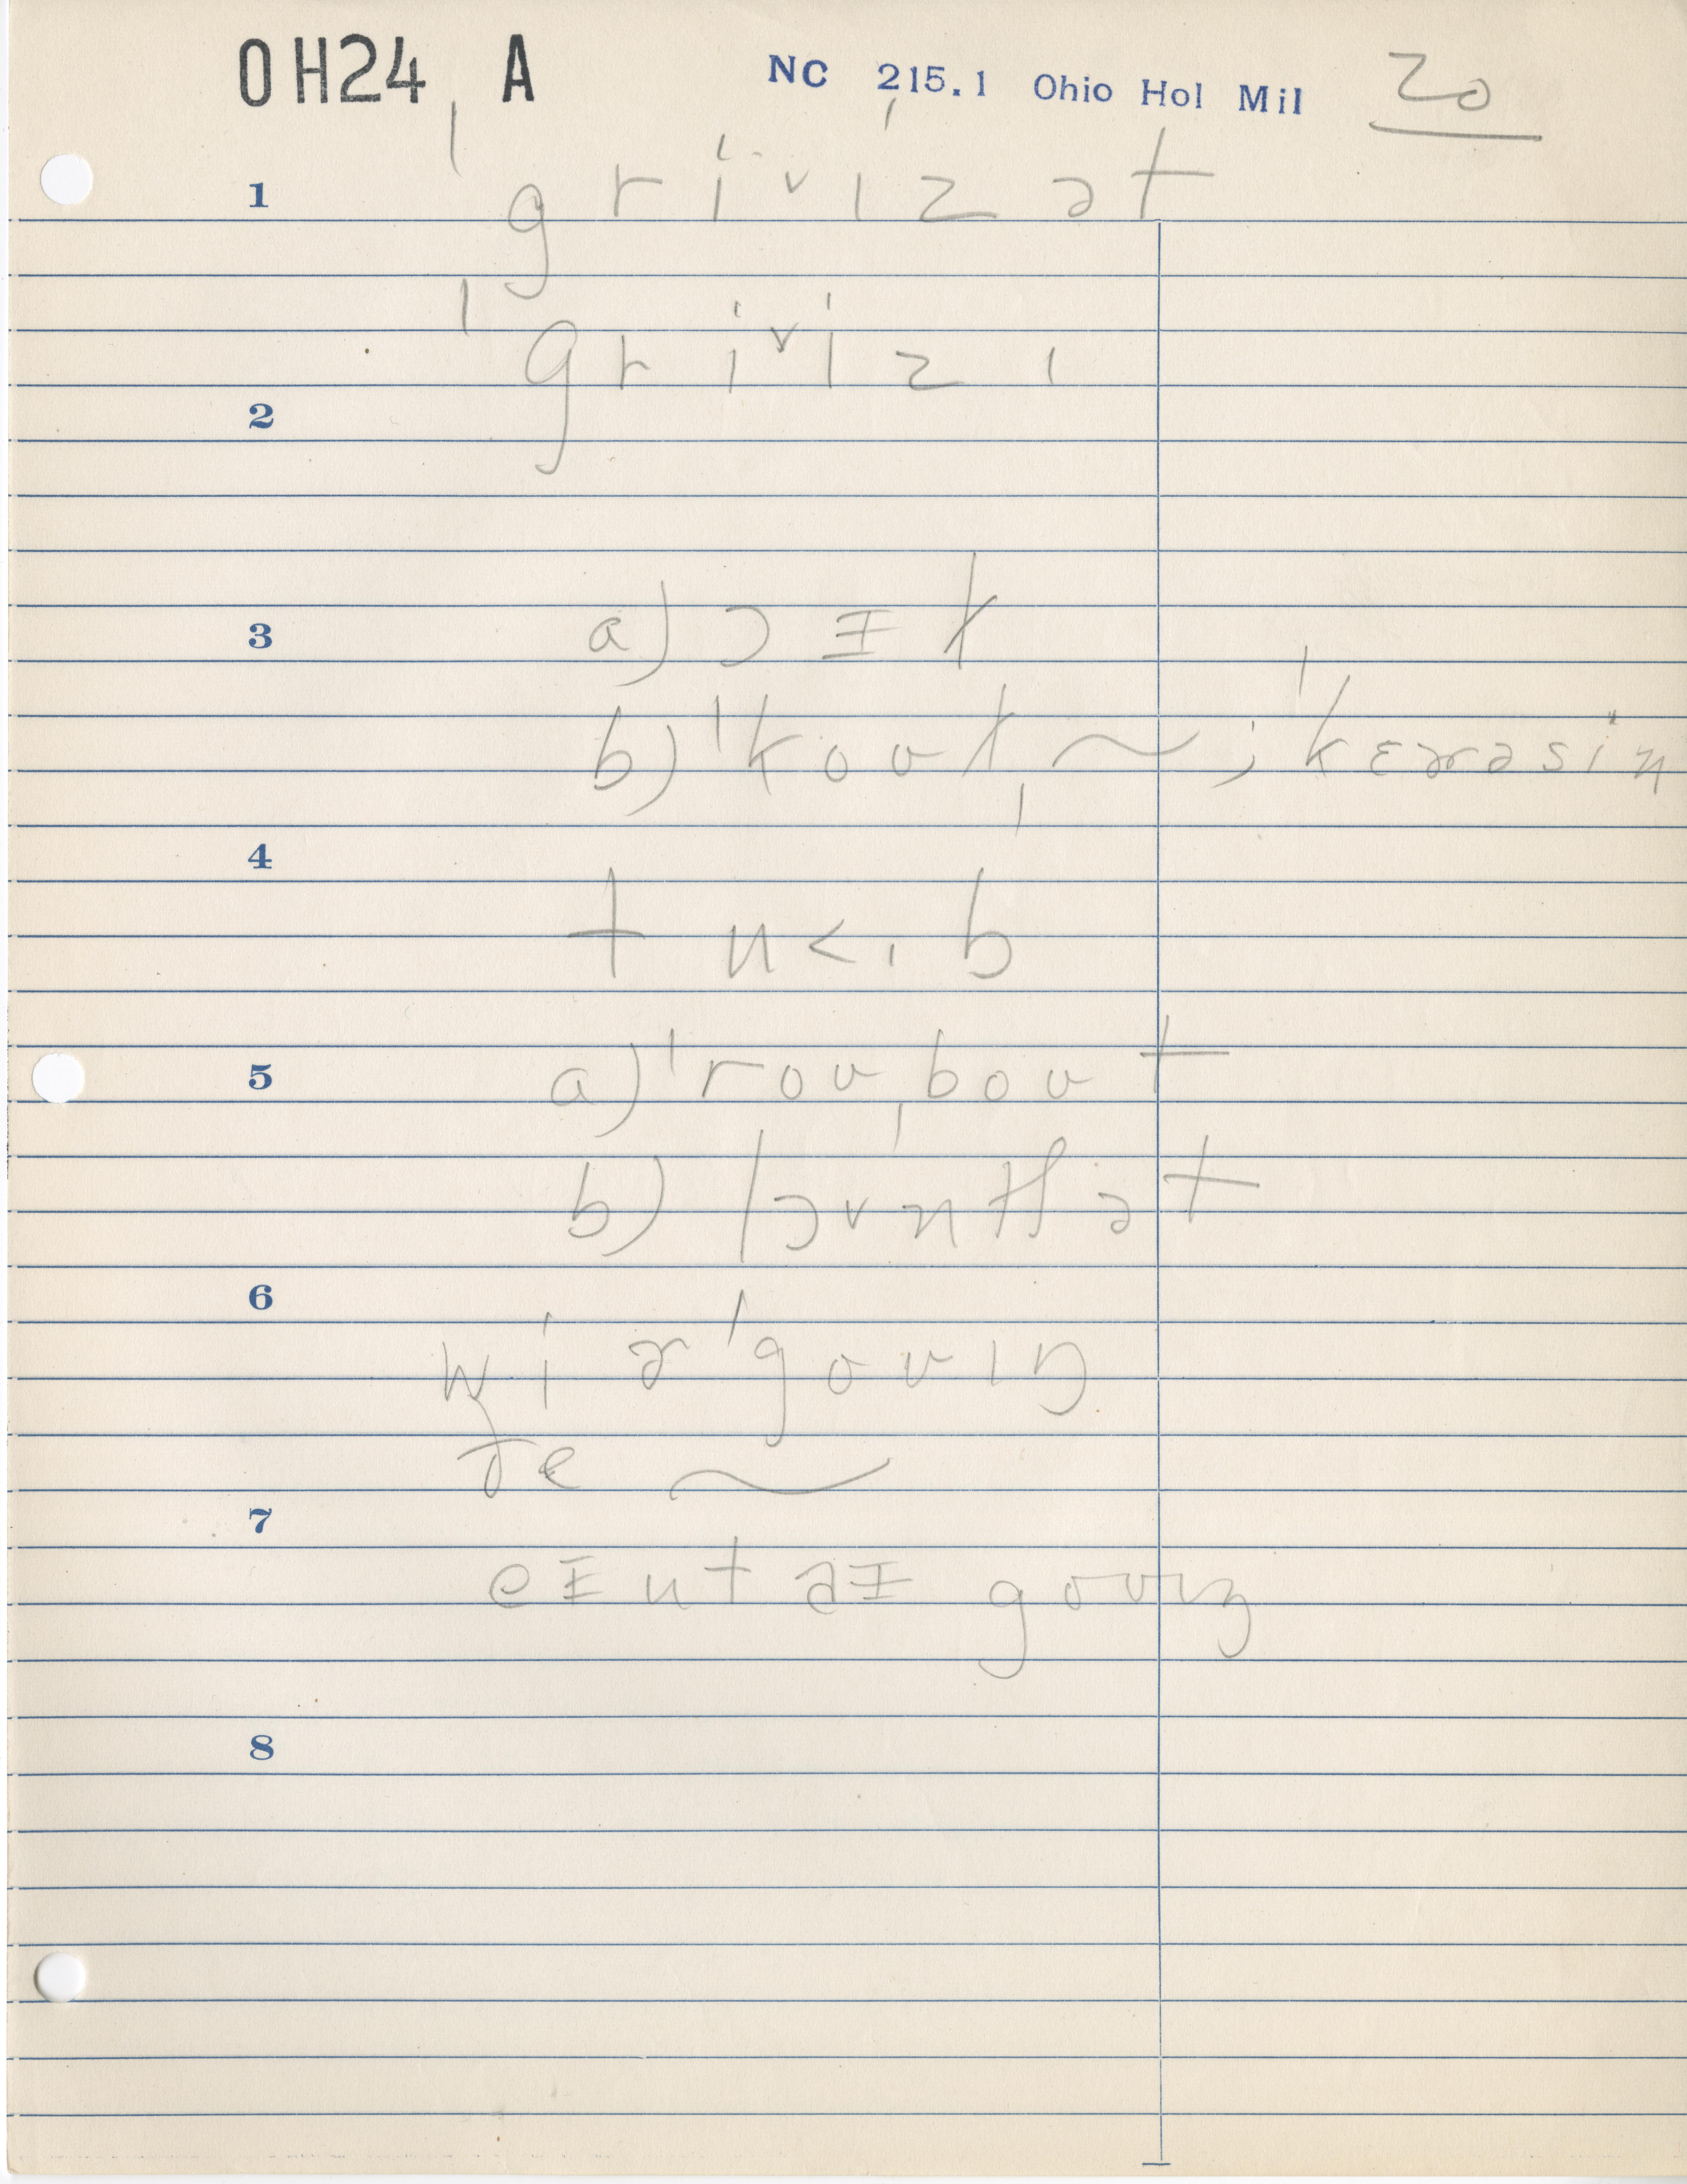 OH24 A NC 215.1 Ohio Hol Mil 20
1 ˈgriᵛɪz ət
ˈgriᵛɪz ɪ
2
3 a) ɔɪl
b) ˈkoʊlˌ~; ˈkɛɚəsin
4
tuᐸɪb
5 a) ˈroʊˌboʊt
b) lɔʊntʃ ət
6
wiɚˈgoʊɪŋ
ðe ~
7
eɪntaɪ goʊɪŋ
8